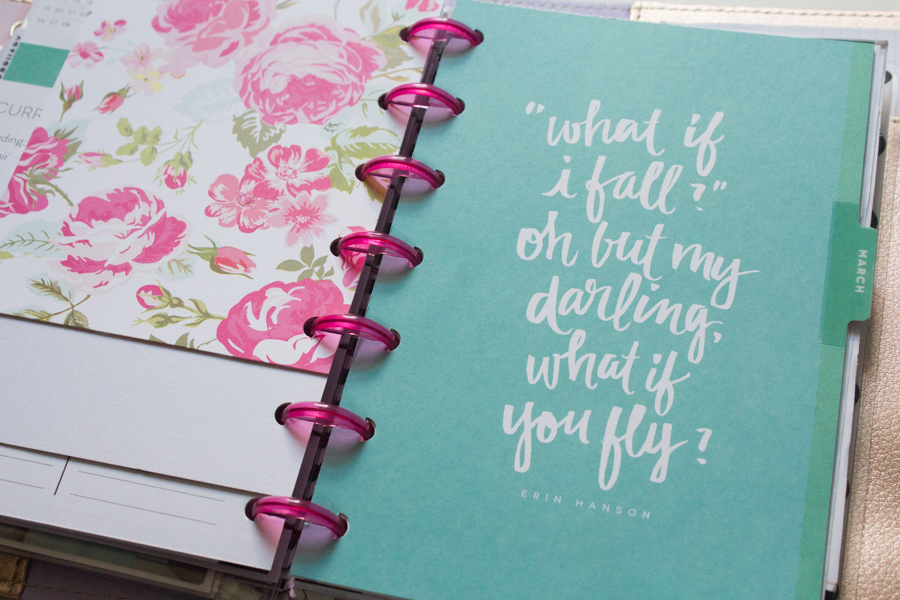 CURR
"what if
i fall?"
oh but my
darling,
what if
you fly?
ERIN HANSON
MARCH